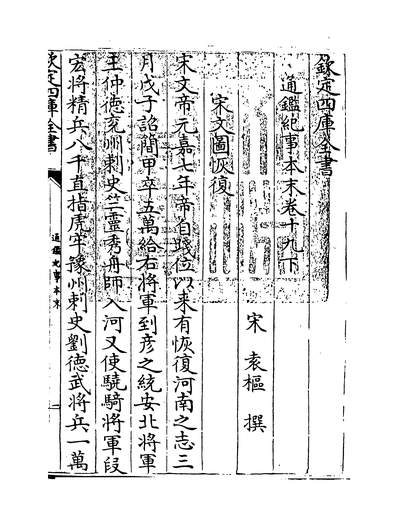 欽定四庫全書
通鑑紀事本末卷十九下
宋 袁樞 撰
宋文圖恢復
宋文帝元嘉七年帝自踐位以來有恢復河南之志三
月戊子詔簡甲卒五萬給右將軍到彥之統安北將軍
王仲德兗州刺史竺靈秀舟師入河又使驍騎將軍段
宏將精兵八千直指虎牢豫州刺史劉德武將兵一萬
欽定四庫全書
通鑑紀事本末